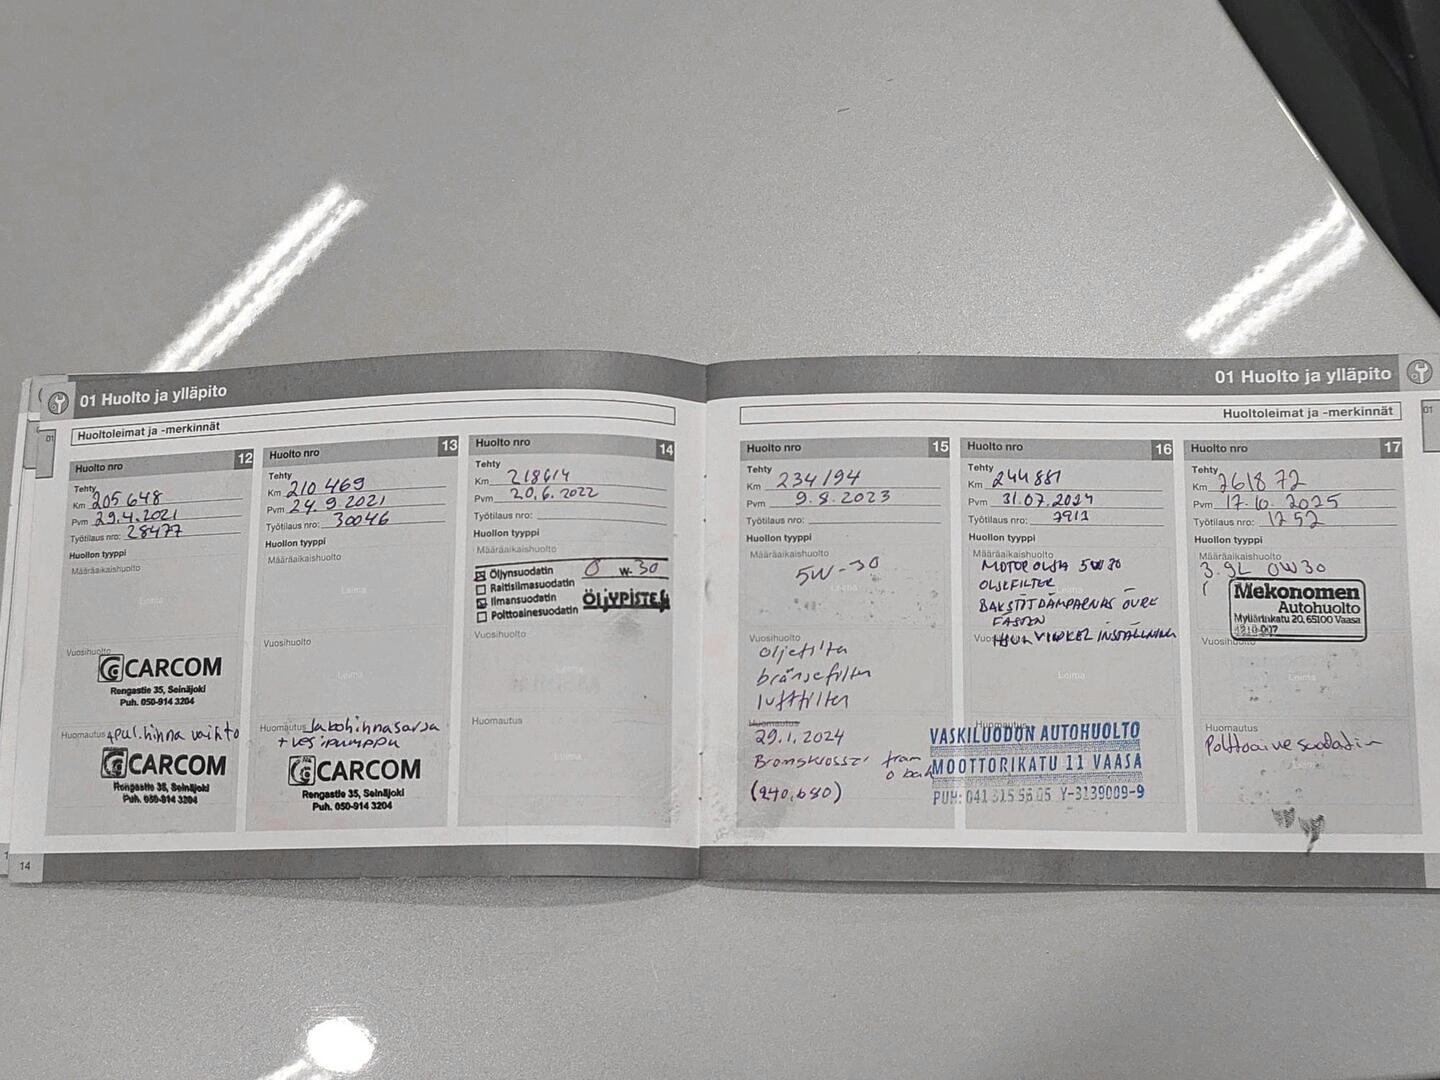 01 Huolto ja ylläpito
Huoltoleimat ja -merkinnät
Huolto nro 12
Tehty
Km 205 648
Pvm 29.4.2021
Työtilaus nro: 28477
Huollon tyyppi
Määräaikaishuolto
Leima
Vuosihuolto
CARCOM
Rengastie 35, Seinäjoki
Puh. 050-914 3204
Huomautus +pul.hihna vaihto
CARCOM
Rengastie 35, Seinäjoki
Puh. 050-914 3204
Huolto nro 13
Tehty
Km 210 469
Pvm 24.9.2021
Työtilaus nro: 30046
Huollon tyyppi
Määräaikaishuolto
Leima
Vuosihuolto
Leima
Huomautus Jakohihnasarja
+ vesipumppu
CARCOM
Rengastie 35, Seinäjoki
Puh. 050-914 3204
Huolto nro 14
Tehty
Km 218614
Pvm 20.6.2022
Työtilaus nro:
Huollon tyyppi
Määräaikaishuolto
Öljynsuodatin 0 W-30
Raitisilmasuodatin
Ilmansuodatin ÖLJYPISTE
Polttoainesuodatin
Vuosihuolto
Leima
Huomautus
Leima
14
01 Huolto ja ylläpito
01
Huoltoleimat ja -merkinnät
Huolto nro 15
Tehty
Km 234194
Pvm 9.8.2023
Työtilaus nro:
Huollon tyyppi
Määräaikaishuolto
5W-30
Leima
Vuosihuolto
Oljefilter
bränslefilter
luftfilter
Huomautus
29.1.2024
Bromskrossar fram
o bak
(240,680)
Huolto nro 16
Tehty
Km 244881
Pvm 31.07.2024
Työtilaus nro: 7911
Huollon tyyppi
Määräaikaishuolto
MOTOR OLJA 5W30
OLJEFILTER
BAKSTÖTDÄMPARNAS ÖVRE
FÄSTEN
Vuosihuolto
HJULVINKEL INSTÄLLNING
Leima
Huomautus
VASKILUODON AUTOHUOLTO
MOOTTORIKATU 11 VAASA
PUH: 041 315 56 05 Y-3139009-9
Huolto nro 17
Tehty
Km 261872
Pvm 17.10.2025
Työtilaus nro: 1252
Huollon tyyppi
Määräaikaishuolto
3.9L 0W30
Mekonomen
Autohuolto
Myllärinkatu 20, 65100 Vaasa
Vuosihuolto
Leima
Huomautus
Polttoainesuodatin
Leima